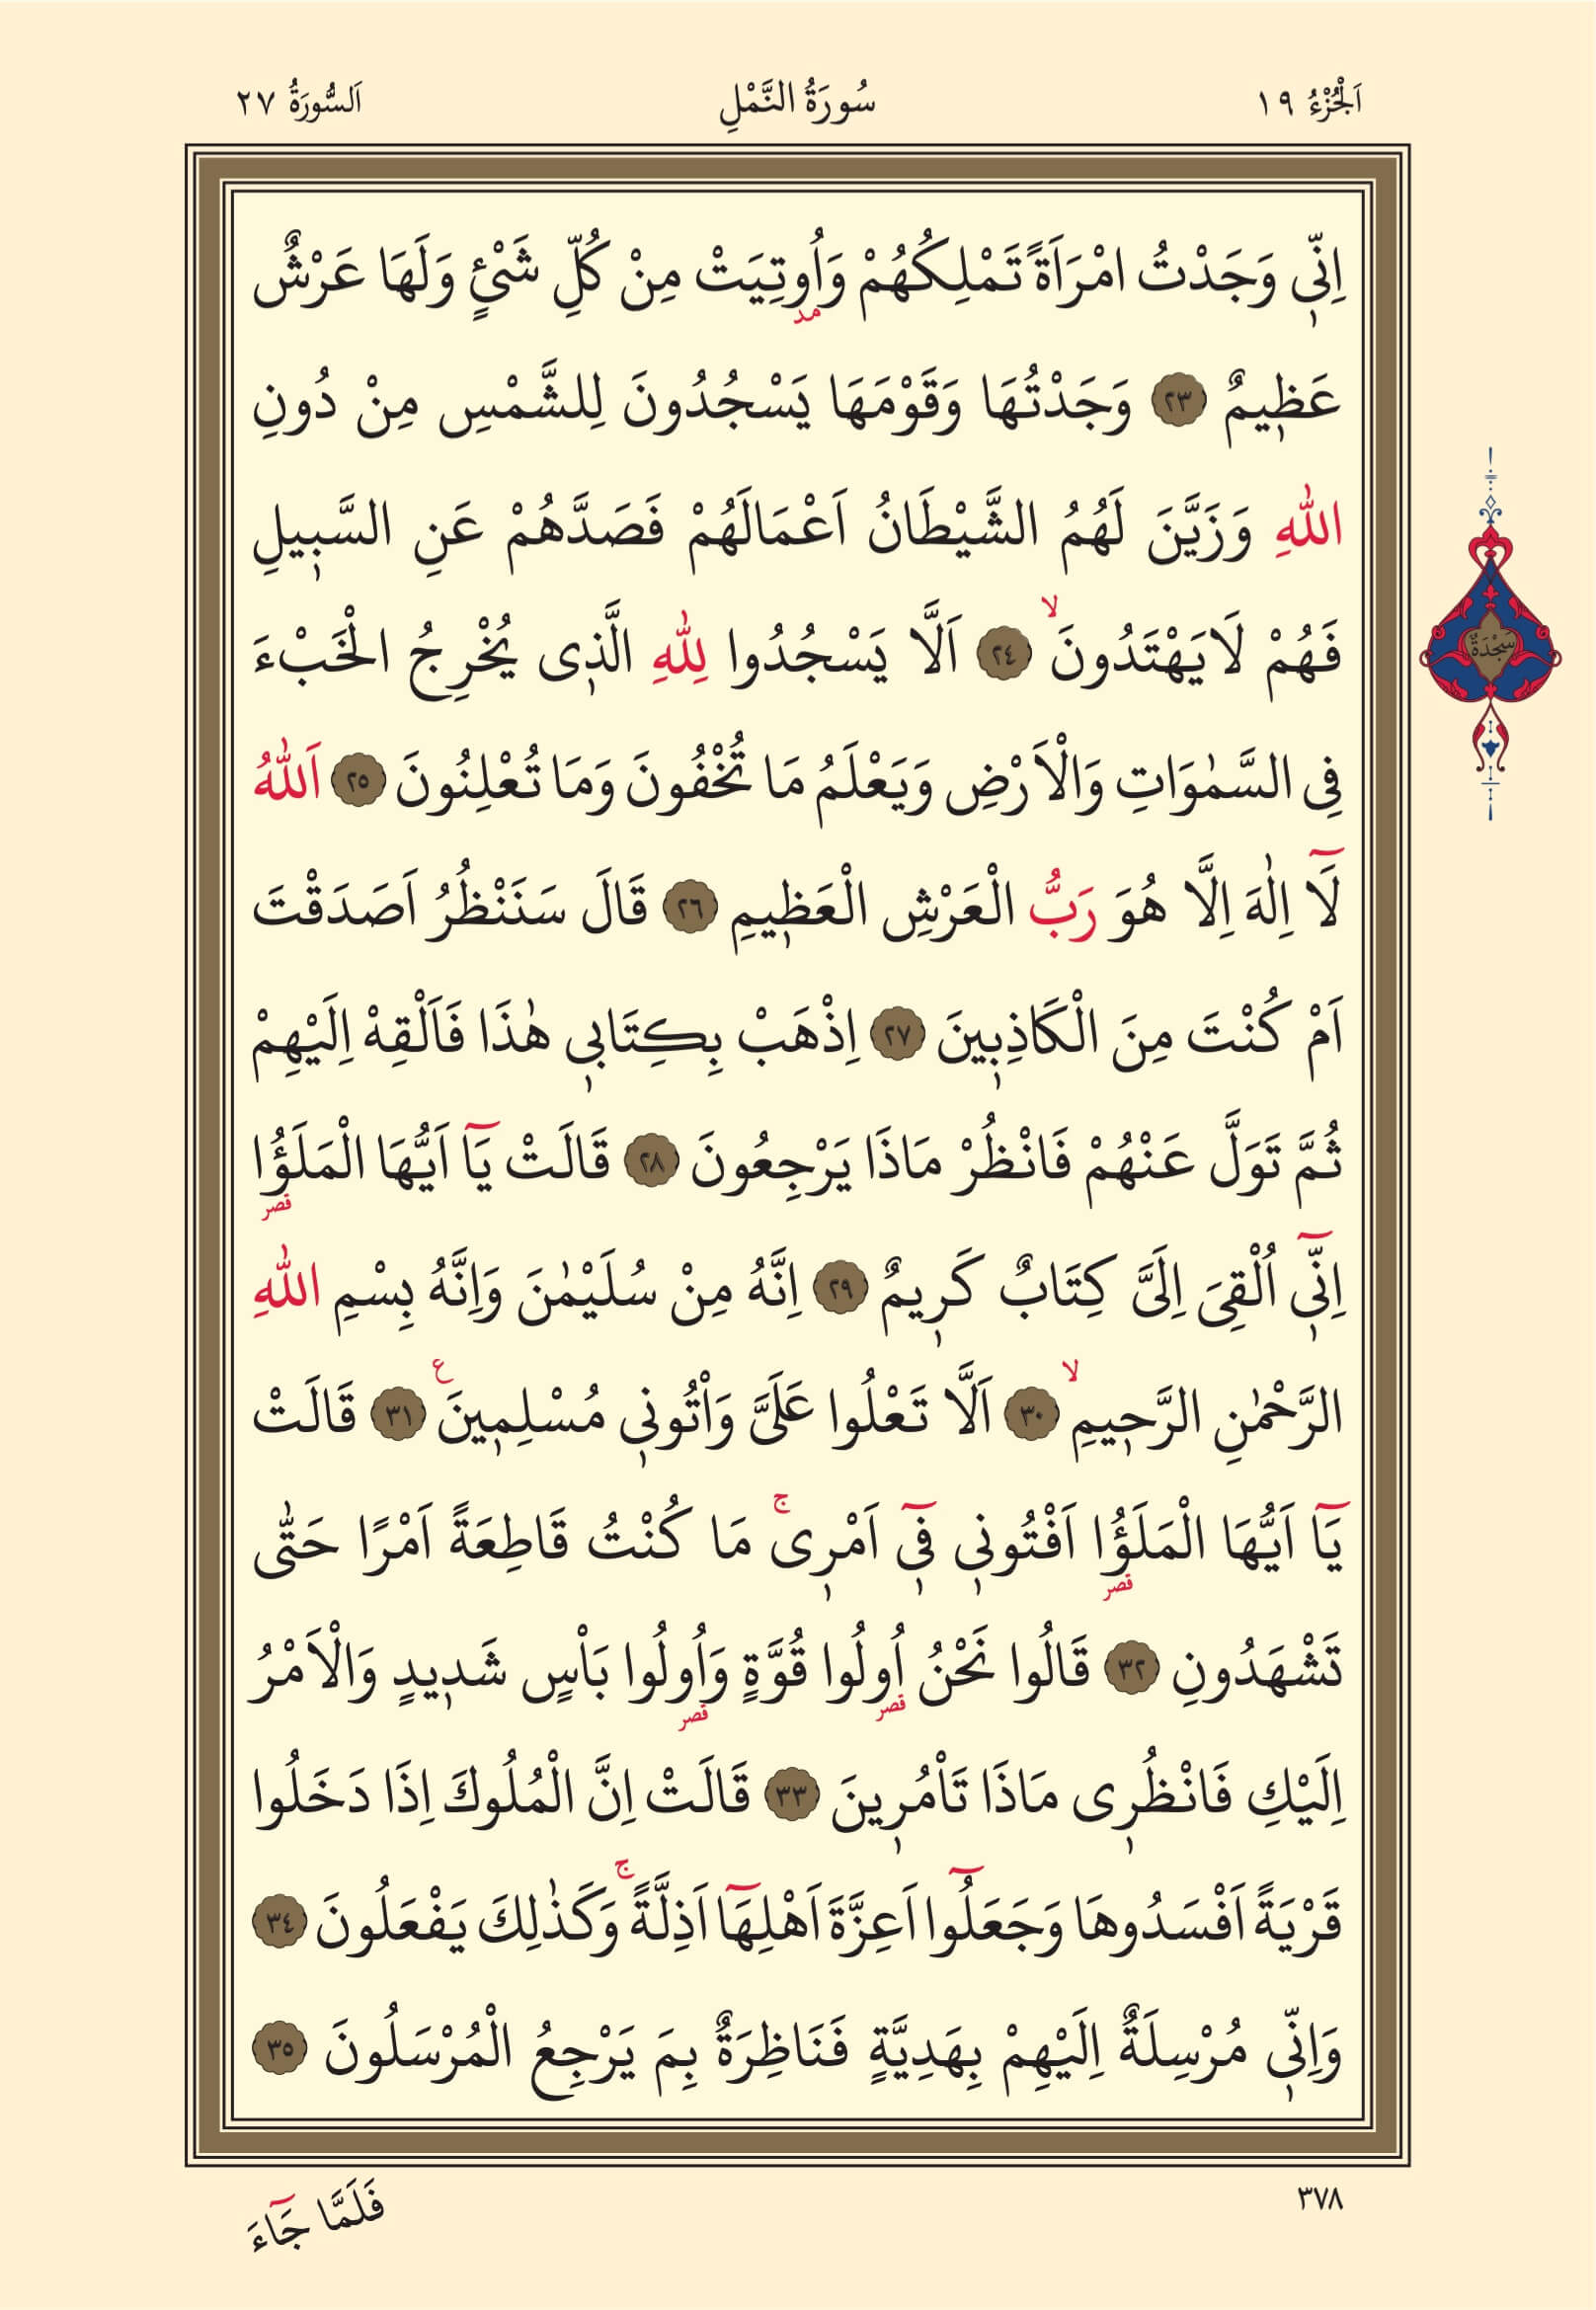 اَلْجُزْءُ ١٩
سُورَةُ النَّمْلِ
اَلسُّورَةُ ٢٧
اِنّ۪ي وَجَدْتُ امْرَاَةً تَمْلِكُهُمْ وَاُوتِيَتْ مِنْ كُلِّ شَيْءٍ وَلَهَا عَرْشٌ
مد
عَظ۪يمٌ ٢٣ وَجَدْتُهَا وَقَوْمَهَا يَسْجُدُونَ لِلشَّمْسِ مِنْ دُونِ
اللّٰهِ وَزَيَّنَ لَهُمُ الشَّيْطَانُ اَعْمَالَهُمْ فَصَدَّهُمْ عَنِ السَّب۪يلِ
فَهُمْ لَا يَهْتَدُونَۙ ٢٤ اَلَّا يَسْجُدُوا لِلّٰهِ الَّذ۪ى يُخْرِجُ الْخَبْءَ
سَجْدَةٌ
فِى السَّمٰوَاتِ وَالْاَرْضِ وَيَعْلَمُ مَا تُخْفُونَ وَمَا تُعْلِنُونَ ٢٥ اَللّٰهُ
لَٓا اِلٰهَ اِلَّا هُوَ رَبُّ الْعَرْشِ الْعَظ۪يمِ ٢٦ قَالَ سَنَنْظُرُ اَصَدَقْتَ
اَمْ كُنْتَ مِنَ الْكَاذِب۪ينَ ٢٧ اِذْهَبْ بِكِتَاب۪ي هٰذَا فَاَلْقِهْ اِلَيْهِمْ
ثُمَّ تَوَلَّ عَنْهُمْ فَانْظُرْ مَاذَا يَرْجِعُونَ ٢٨ قَالَتْ يَٓا اَيُّهَا الْمَلَؤُا
قصر
اِنّ۪ٓي اُلْقِىَ اِلَىَّ كِتَابٌ كَر۪يمٌ ٢٩ اِنَّهُ مِنْ سُلَيْمٰنَ وَاِنَّهُ بِسْمِ اللّٰهِ
الرَّحْمٰنِ الرَّح۪يمِۙ ٣٠ اَلَّا تَعْلُوا عَلَىَّ وَأْتُون۪ي مُسْلِم۪ينَ ع ٣١ قَالَتْ
يَٓا اَيُّهَا الْمَلَؤُا اَفْتُون۪ي ف۪ٓي اَمْر۪ىۚ مَا كُنْتُ قَاطِعَةً اَمْرًا حَتّٰى
قصر
تَشْهَدُونِ ٣٢ قَالُوا نَحْنُ اُولُوا قُوَّةٍ وَاُولُوا بَأْسٍ شَد۪يدٍ وَالْاَمْرُ
قصر قصر
اِلَيْكِ فَانْظُر۪ى مَاذَا تَأْمُر۪ينَ ٣٣ قَالَتْ اِنَّ الْمُلُوكَ اِذَا دَخَلُوا
قَرْيَةً اَفْسَدُوهَا وَجَعَلُٓوا اَعِزَّةَ اَهْلِهَٓا اَذِلَّةًۚ وَكَذٰلِكَ يَفْعَلُونَ ٣٤
وَاِنّ۪ي مُرْسِلَةٌ اِلَيْهِمْ بِهَدِيَّةٍ فَنَاظِرَةٌ بِمَ يَرْجِعُ الْمُرْسَلُونَ ٣٥
٣٧٨
فَلَمَّا جَٓاءَ